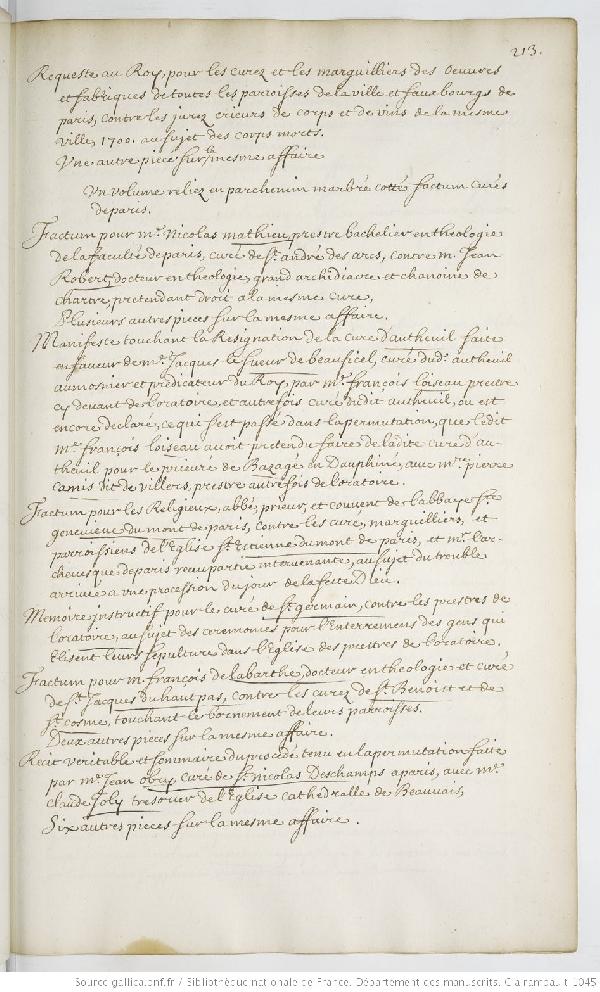 213.
Requeste au Roy, pour les curez et les marguilliers des Oeuvres
et fabriques de toutes les parroisses de la ville et fauxbourgs de
paris, contre les jurez crieurs de corps et de vins de la mesme
ville, 1700. au sujet des corps morts.
Vne autre piece sur la mesme affaire
Vn volume reliez en parchemin marbré cotté factum curés
de paris.
Factum pour mr. Nicolas mathieu, prestre bachelier en theologie
de la faculté de paris, curé de st. andré des arcs, contre m. Jean
Robert, docteur en theologie, grand archidiacre et chanoine de
chartre, pretendant droit a la mesme cure,
Plusieurs autres pieces sur la mesme affaire.
Manifeste touchant la Resignation de la cure d'autheuil faite
en faveur de mr. Jacques le sueur de beauficel, curé dud. autheuil
aumosnier et predicateur du Roy, par mr. françois loiseau prestre
cy devant de l'oratoire, et autrefois curé dudit autheuil, ou est
encore declaré, ce qui s'est passé dans la permutation, que ledit
mr. françois loiseau avoit pretendu faire de ladite cure d'au-
theuil pour le prieuré de Bazagé en Dauphiné, avec mre. pierre
Camis dit de villers, prestre autrefois de l'oratoire.
Factum pour les Religieux, abbé, prieur, et couvent de l'abbaye ste.
genevieve du mont de paris, contre les curé, marguilliers, et
parroissiens de l'Eglise st. Estienne du mont de paris, et mr. l'ar-
chevesque de paris receu partie intervenante, au sujet du trouble
arrivée a vne procession du jour de la feste Dieu.
Memoire instructif pour le curé de st. germain, contre les prestres de
l'oratoire, au sujet des ceremonies pour l'enterremens des gens qui
Elisent leurs sepulture dans l'Eglise des prestres de l'oratoire.
Factum pour m. françois de labarthe, docteur en theologie et curé
de st. Jacques du haut pas, contre les curez de st. Benoist et de
st. cosme, touchant le bornement de leurs parroisses.
Deux autres pieces sur la mesme affaire.
Recit veritable et sommaire du procedé tenu en la permutation faite
par mr. Jean obry curé de st. Nicolas Deschamps a paris, avec mr.
claude Joly tresorier de l'Eglise cathedralle de Beauvais,
Six autres pieces sur la mesme affaire.
Source gallica.bnf.fr / Bibliothèque nationale de France. Département des manuscrits. Clairambault 1045